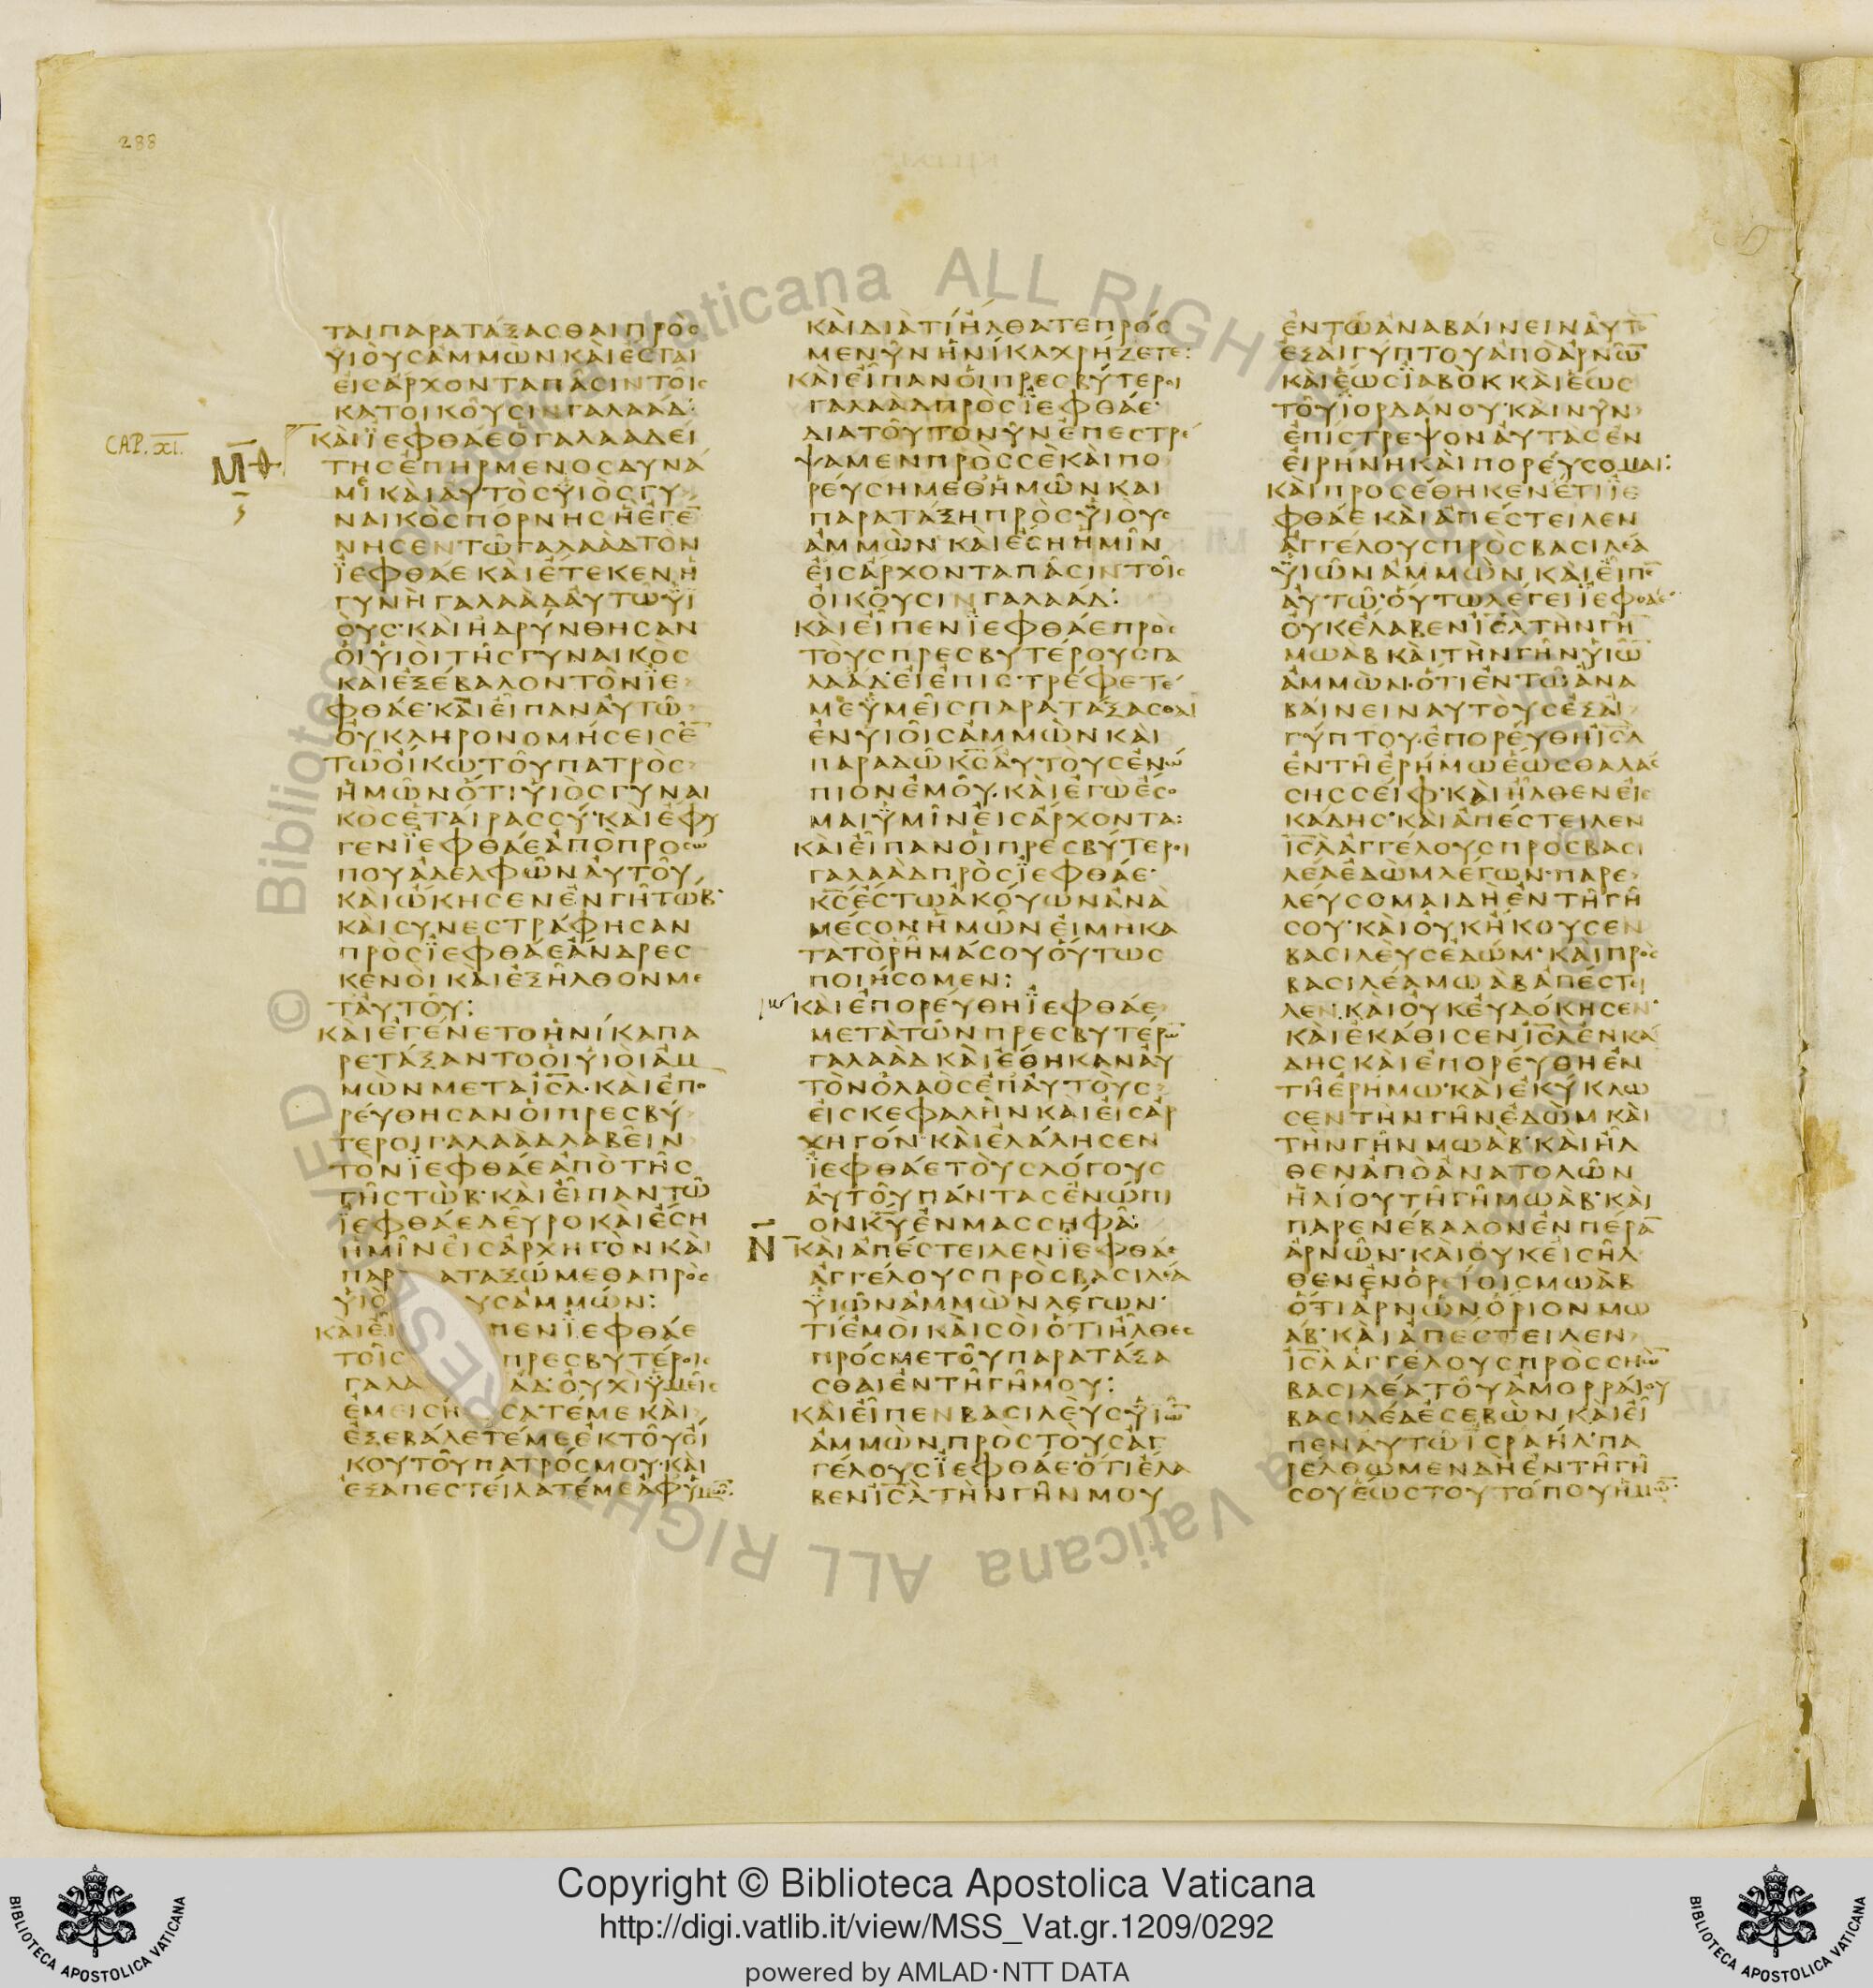 288
ΤΑΙΠΑΡΑΤΑΞΑΣΘΑΙΠΡΟΣ
ΥΙΟΥΣΑΜΜΩΝΚΑΙΕΣΤΑΙ
ΕΙΣΑΡΧΟΝΤΑΠΑΣΙΝΤΟΙΣ
ΚΑΤΟΙΚΟΥΣΙΝΓΑΛΑΑΔ:
CAP. XI.
Μ̅Θ
ΚΑΙΪΕΦΘΑΕΟΓΑΛΑΑΔΕΙ
ΤΗΣΕΠΗΡΜΕΝΟΣΔΥΝΑ
ΜΙΚΑΙΑΥΤΟΣΥΙΟΣΓΥ
ΝΑΙΚΟΣΠΟΡΝΗΣΗΕΓΕ
ΝΗΣΕΝΤΩΓΑΛΑΑΔΤΟΝ
ΪΕΦΘΑΕΚΑΙΕΤΕΚΕΝΗ
ΓΥΝΗΓΑΛΑΑΔΑΥΤΩΥΪ
ΟΥΣ·ΚΑΙΗΔΡΥΝΘΗΣΑΝ
ΟΙΥΙΟΙΤΗΣΓΥΝΑΙΚΟΣ
ΚΑΙΕΞΕΒΑΛΟΝΤΟΝΪΕ
ΦΘΑΕ·ΚΑΙΕΙΠΑΝΑΥΤΩ
ΟΥΚΛΗΡΟΝΟΜΗΣΕΙΣΕ̅
ΤΩΟΙΚΩΤΟΥΠΑΤΡΟΣ
ΗΜΩΝΟΤΙΥΙΟΣΓΥΝΑΙ
ΚΟΣΕΤΑΙΡΑΣΣΥ·ΚΑΙΕΦΥ
ΓΕΝΪΕΦΘΑΕΑΠΟΠΡΟΣΩ
ΠΟΥΑΔΕΛΦΩΝΑΥΤΟΥ
ΚΑΙΩΚΗΣΕΝΕΝΓΗΤΩΒ·
ΚΑΙΣΥΝΕΣΤΡΑΦΗΣΑΝ
ΠΡΟΣΪΕΦΘΑΕΑΝΔΡΕΣ
ΚΕΝΟΙΚΑΙΕΞΗΛΘΟΝΜΕ
ΤΑΥΤΟΥ:
ΚΑΙΕΓΕΝΕΤΟΗΝΙΚΑΠΑ
ΡΕΤΑΞΑΝΤΟΟΙΥΙΟΙΑΜ
ΜΩΝΜΕΤΑΙΣ̅Λ·ΚΑΙΕΠΟ
ΡΕΥΘΗΣΑΝΟΙΠΡΕΣΒΥ
ΤΕΡΟΙΓΑΛΑΑΔΛΑΒΕΙΝ
ΤΟΝΪΕΦΘΑΕΑΠΟΤΗΣ
ΓΗΣΤΩΒ·ΚΑΙΕΙΠΑΝΤΩ
ΪΕΦΘΑΕΔΕΥΡΟΚΑΙΕΣΗ
ΗΜΙΝΕΙΣΑΡΧΗΓΟΝΚΑΙ
ΠΑΡΑΤΑΞΩΜΕΘΑΠΡΟΣ
ΥΙΟΥΣΑΜΜΩΝ:
ΚΑΙΕΙΠΕΝΪΕΦΘΑΕ
ΤΟΙΣΠΡΕΣΒΥΤΕΡΟΙΣ
ΓΑΛΑΑΔ·ΟΥΧΙΫΜΕΙΣ
ΕΜΕΙΣΗΣΑΤΕΜΕΚΑΙ
ΕΞΕΒΑΛΕΤΕΜΕΕΚΤΟΥΟΙ
ΚΟΥΤΟΥΠΑΤΡΟΣΜΟΥ·ΚΑΙ
ΕΞΑΠΕΣΤΕΙΛΑΤΕΜΕΑΦΥΜΩ̅:
ΚΑΙΔΙΑΤΙΗΛΘΑΤΕΠΡΟΣ
ΜΕΝΥΝΗΝΙΚΑΧΡΗΖΕΤΕ:
ΚΑΙΕΙΠΑΝΟΙΠΡΕΣΒΥΤΕΡΟΙ
ΓΑΛΑΑΔΠΡΟΣΪΕΦΘΑΕ·
ΔΙΑΤΟΥΤΟΝΥΝΕΠΕΣΤΡΕ
ΨΑΜΕΝΠΡΟΣΣΕΚΑΙΠΟ
ΡΕΥΣΗΜΕΘΗΜΩΝΚΑΙ
ΠΑΡΑΤΑΞΗΠΡΟΣΫΙΟΥΣ
ΑΜΜΩΝ·ΚΑΙΕΣΗΗΜΙΝ
ΕΙΣΑΡΧΟΝΤΑΠΑΣΙΝΤΟΙΣ
ΟΙΚΟΥΣΙΝΓΑΛΑΑΔ:
ΚΑΙΕΙΠΕΝΪΕΦΘΑΕΠΡΟΣ
ΤΟΥΣΠΡΕΣΒΥΤΕΡΟΥΣΓΑ
ΛΑΑΔ·ΕΙΕΠΙΣΤΡΕΦΕΤΕ
ΜΕΫΜΕΙΣΠΑΡΑΤΑΞΑΣΘΑΙ
ΕΝΥΙΟΙΣΑΜΜΩΝΚΑΙ
ΠΑΡΑΔΩΚ̅Σ̅ΑΥΤΟΥΣΕΝΩ
ΠΙΟΝΕΜΟΥ·ΚΑΙΕΓΩΕΣΟ
ΜΑΙΫΜΙΝΕΙΣΑΡΧΟΝΤΑ:
ΚΑΙΕΙΠΑΝΟΙΠΡΕΣΒΥΤΕΡΟΙ
ΓΑΛΑΑΔΠΡΟΣΪΕΦΘΑΕ·
Κ̅Σ̅ΕΣΤΩΑΚΟΥΩΝΑΝΑ
ΜΕΣΟΝΗΜΩΝΕΙΜΗΚΑ
ΤΑΤΟΡΗΜΑΣΟΥΟΥΤΩΣ
ΠΟΙΗΣΟΜΕΝ:
ΚΑΙΕΠΟΡΕΥΘΗΪΕΦΘΑΕ
ΜΕΤΑΤΩΝΠΡΕΣΒΥΤΕΡΩ̅
ΓΑΛΑΑΔΚΑΙΕΘΗΚΑΝΑΥ
ΤΟΝΟΛΑΟΣΕΠΑΥΤΟΥΣ
ΕΙΣΚΕΦΑΛΗΝΚΑΙΕΙΣΑΡ
ΧΗΓΟΝ·ΚΑΙΕΛΑΛΗΣΕΝ
ΪΕΦΘΑΕΤΟΥΣΛΟΓΟΥΣ
ΑΥΤΟΥΠΑΝΤΑΣΕΝΩΠΙ
ΟΝΚ̅Υ̅ΕΝΜΑΣΣΗΦΑ:
Ν̅
ΚΑΙΑΠΕΣΤΕΙΛΕΝΪΕΦΘΑΕ
ΑΓΓΕΛΟΥΣΠΡΟΣΒΑΣΙΛΕΑ
ΫΙΩΝΑΜΜΩΝΛΕΓΩΝ·
ΤΙΕΜΟΙΚΑΙΣΟΙΟΤΙΗΛΘΕΣ
ΠΡΟΣΜΕΤΟΥΠΑΡΑΤΑΞΑ
ΣΘΑΙΕΝΤΗΓΗΜΟΥ:
ΚΑΙΕΙΠΕΝΒΑΣΙΛΕΥΣΥΙΩ̅
ΑΜΜΩΝΠΡΟΣΤΟΥΣΑΓ
ΓΕΛΟΥΣΪΕΦΘΑΕ·ΟΤΙΕΛΑ
ΒΕΝΙΣ̅ΛΤΗΝΓΗΝΜΟΥ
ΕΝΤΩΑΝΑΒΑΙΝΕΙΝΑΥΤΟ̅
ΕΞΑΙΓΥΠΤΟΥΑΠΟΑΡΝΩ̅
ΚΑΙΕΩΣΪΑΒΟΚΚΑΙΕΩΣ
ΤΟΥΪΟΡΔΑΝΟΥ·ΚΑΙΝΥΝ
ΕΠΙΣΤΡΕΨΟΝΑΥΤΑΣΕΝ
ΕΙΡΗΝΗΚΑΙΠΟΡΕΥΣΟΜΑΙ:
ΚΑΙΠΡΟΣΕΘΗΚΕΝΕΤΙΪΕ
ΦΘΑΕΚΑΙΑΠΕΣΤΕΙΛΕΝ
ΑΓΓΕΛΟΥΣΠΡΟΣΒΑΣΙΛΕΑ
ΫΙΩΝΑΜΜΩΝΚΑΙΕΙΠΕ̅
ΑΥΤΩ·ΟΥΤΩΛΕΓΕΙΪΕΦΘΑΕ·
ΟΥΚΕΛΑΒΕΝΙΣ̅ΛΤΗΝΓΗ̅
ΜΩΑΒΚΑΙΤΗΝΓΗΝΥΙΩ̅
ΑΜΜΩΝ·ΟΤΙΕΝΤΩΑΝΑ
ΒΑΙΝΕΙΝΑΥΤΟΥΣΕΞΑΙ
ΓΥΠΤΟΥ·ΕΠΟΡΕΥΘΗΙΣ̅Λ
ΕΝΤΗΕΡΗΜΩΕΩΣΘΑΛΑΣ
ΣΗΣΣΕΙΦ·ΚΑΙΗΛΘΕΝΕΙΣ
ΚΑΔΗΣ·ΚΑΙΑΠΕΣΤΕΙΛΕΝ
ΙΣ̅ΛΑΓΓΕΛΟΥΣΠΡΟΣΒΑΣΙ
ΛΕΑΕΔΩΜΛΕΓΩΝ·ΠΑΡΕ
ΛΕΥΣΟΜΑΙΔΗΕΝΤΗΓΗ
ΣΟΥ·ΚΑΙΟΥΚΗΚΟΥΣΕΝ
ΒΑΣΙΛΕΥΣΕΔΩΜ·ΚΑΙΠΡΟΣ
ΒΑΣΙΛΕΑΜΩΑΒΑΠΕΣΤΕΙ
ΛΕΝ·ΚΑΙΟΥΚΕΥΔΟΚΗΣΕΝ·
ΚΑΙΕΚΑΘΙΣΕΝΙΣ̅ΛΕΝΚΑ
ΔΗΣΚΑΙΕΠΟΡΕΥΘΗΕΝ
ΤΗΕΡΗΜΩ·ΚΑΙΕΚΥΚΛΩ
ΣΕΝΤΗΝΓΗΝΕΔΩΜΚΑΙ
ΤΗΝΓΗΝΜΩΑΒ·ΚΑΙΗΛ
ΘΕΝΑΠΟΑΝΑΤΟΛΩΝ
ΗΛΙΟΥΤΗΓΗΜΩΑΒ·ΚΑΙ
ΠΑΡΕΝΕΒΑΛΟΝΕΝΠΕΡΑ̅
ΑΡΝΩΝ·ΚΑΙΟΥΚΕΙΣΗΛ
ΘΕΝΕΝΟΡΙΟΙΣΜΩΑΒ
ΟΤΙΑΡΝΩΝΟΡΙΟΝΜΩ
ΑΒ·ΚΑΙΑΠΕΣΤΕΙΛΕΝ
ΙΣ̅ΛΑΓΓΕΛΟΥΣΠΡΟΣΣΗΩ̅
ΒΑΣΙΛΕΑΤΟΥΑΜΟΡΡΑΙΟΥ
ΒΑΣΙΛΕΑΕΣΕΒΩΝΚΑΙΕΙ
ΠΕΝΑΥΤΩΙΣΡΑΗΛ·ΠΑ
ΡΕΛΘΩΜΕΝΔΗΕΝΤΗΓΗ
ΣΟΥΕΩΣΤΟΥΤΟΠΟΥΗΜΩ̅:
© Biblioteca Apostolica Vaticana ALL RIGHTS RESERVED
© Biblioteca Apostolica Vaticana ALL RIGHTS RESERVED
Copyright © Biblioteca Apostolica Vaticana
http://digi.vatlib.it/view/MSS_Vat.gr.1209/0292
powered by AMLAD·NTT DATA
BIBLIOTECA APOSTOLICA VATICANA
BIBLIOTECA APOSTOLICA VATICANA